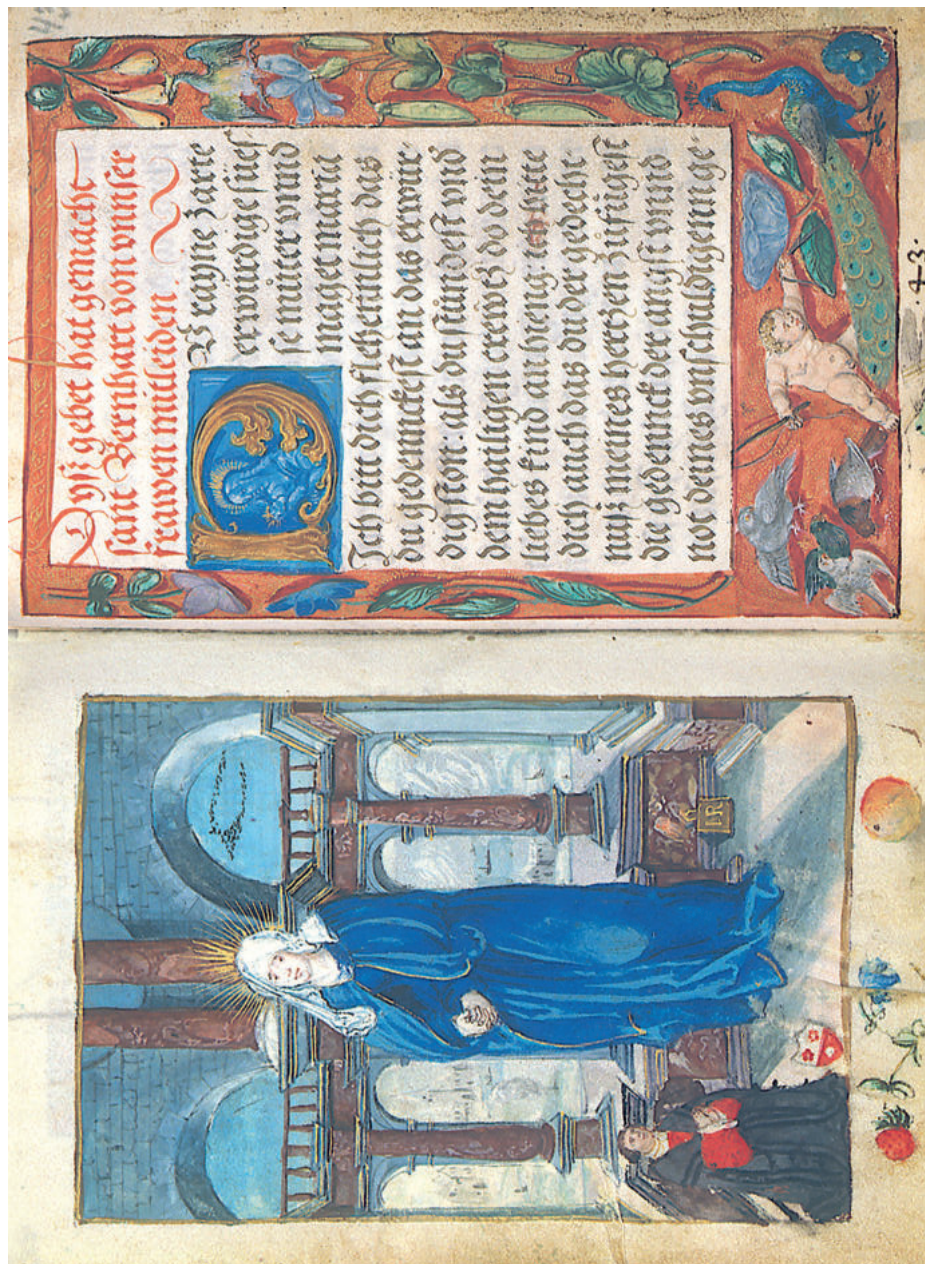 Dysz gebet hat gemacht
sant Bernhart von vnnser
frawen mitleiden.
O rayne zarte
erwurdige sües-
se muter vnnd
maget maria
Jch bin dich flehennttlich das
du gedennckest an das erwür-
dig ston: als du stündest vnd
dem heiligen crewtz do dein
liebes kind an hieng:
dich auch das du der gedecht-
nusz meines herrtzen zufügest
die gedennck der anngst vnnd
not deines vnschuldigenn ge-
43.